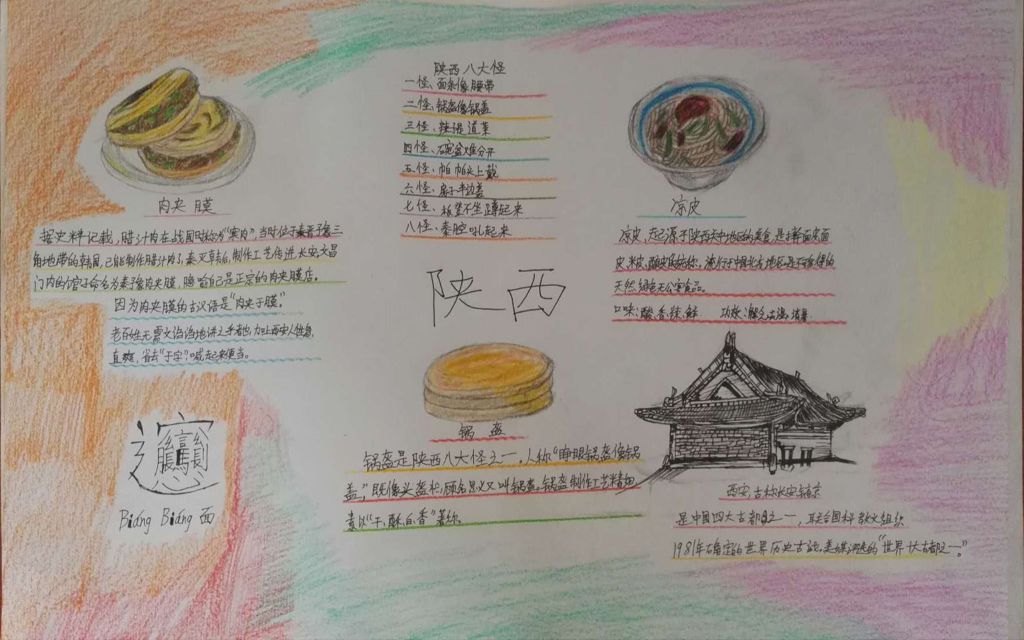 陕西八大怪
一怪、面条像腰带
二怪、锅盔像锅盖
三怪、辣子是道菜
四怪、碗盆难分开
五怪、帕帕头上戴
六怪、房子半边盖
七怪、板凳不坐蹲起来
八怪、秦腔吼起来
肉夹膜
据史料记载，腊汁肉在战国时称为"寒肉"，当时位于秦晋豫三
角地带的韩国，已能制作腊汁肉了，秦灭韩后，制作工艺传进长安。文昌
门内的馆子命名为秦豫肉夹膜，
自己是正宗的肉夹膜店。
因为肉夹膜的古汉语是"肉夹于膜"。
老百姓无需文诌诌地讲之乎者也，加上西安人性急
直爽，省去"于字"，喊起来便当。
凉皮
凉皮，起源于陕西关中地区的美食，是
皮、米皮、
的统称，流行于中国北方地区是不可多得的
天然绿色无公害食品。
口味：酸、香、辣、鲜 功效：解乏
陕西
锅盔
锅盔是陕西八大怪之一，人称"
锅盔像锅
盖，"既像头盔状，顾名思义又叫锅盔。锅盔制作工艺精细
素以"干、酥、白、香"著称。
Biáng Biáng 面
西安，古称长安、镐京
是中国四大古都之一，联合国科教文组织
1981年确定的世界历史古城，美媒
的"世界十大古都之一。"